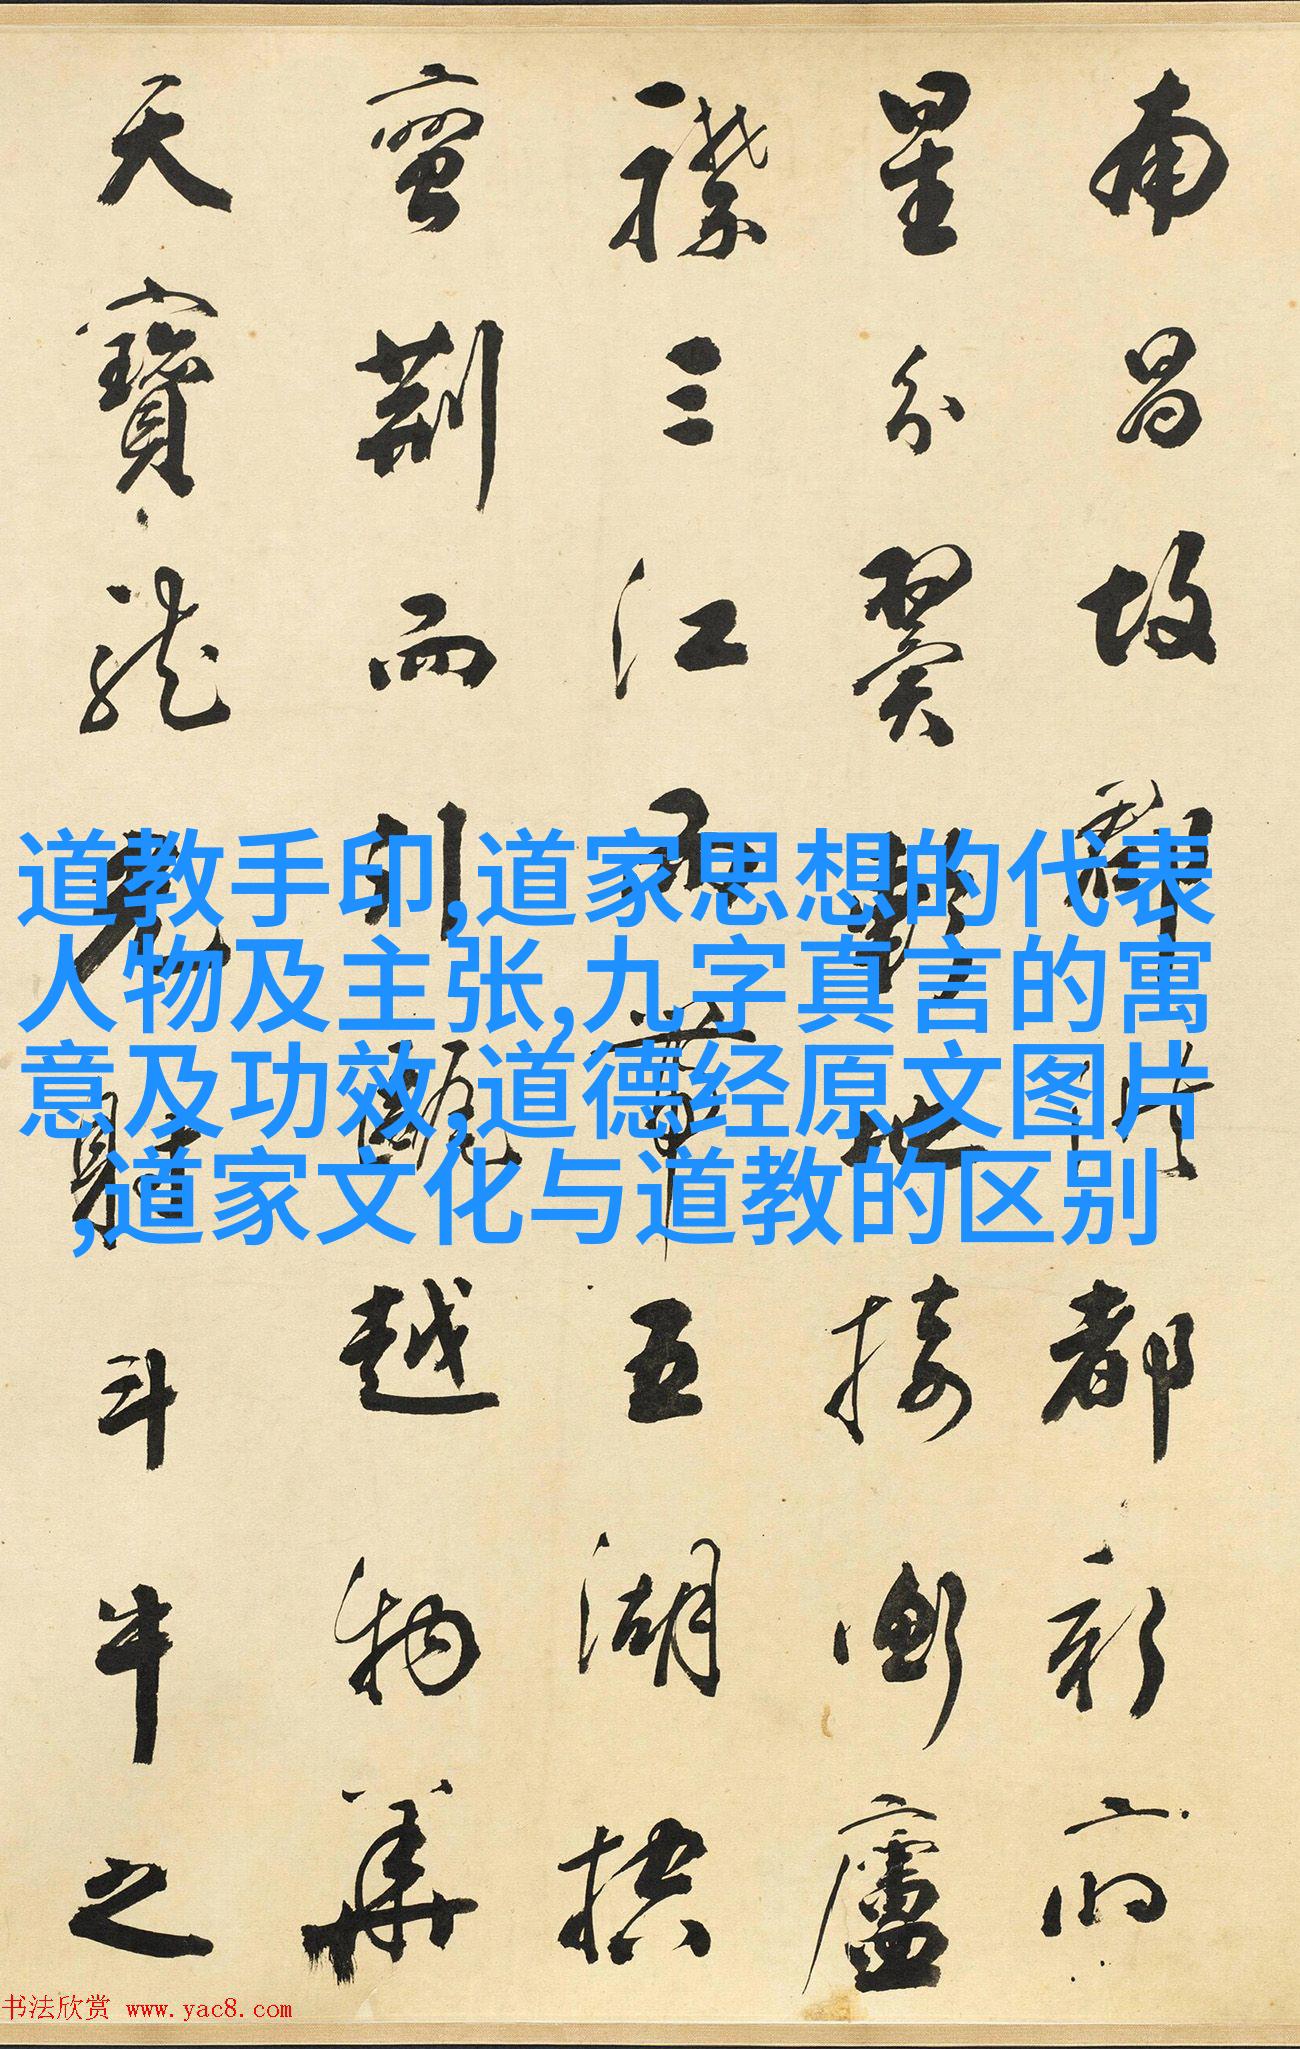 南昌故郡洪都新府
星分翼軫地接衡廬
襟三江而帶五湖控
蠻荊而引甌越物華
天寶龍光射斗牛之
道教手印,道家思想的代表
人物及主张,九字真言的寓
意及功效,道德经原文图片
,道家文化与道教的区别
书法欣赏 www.yac8.com